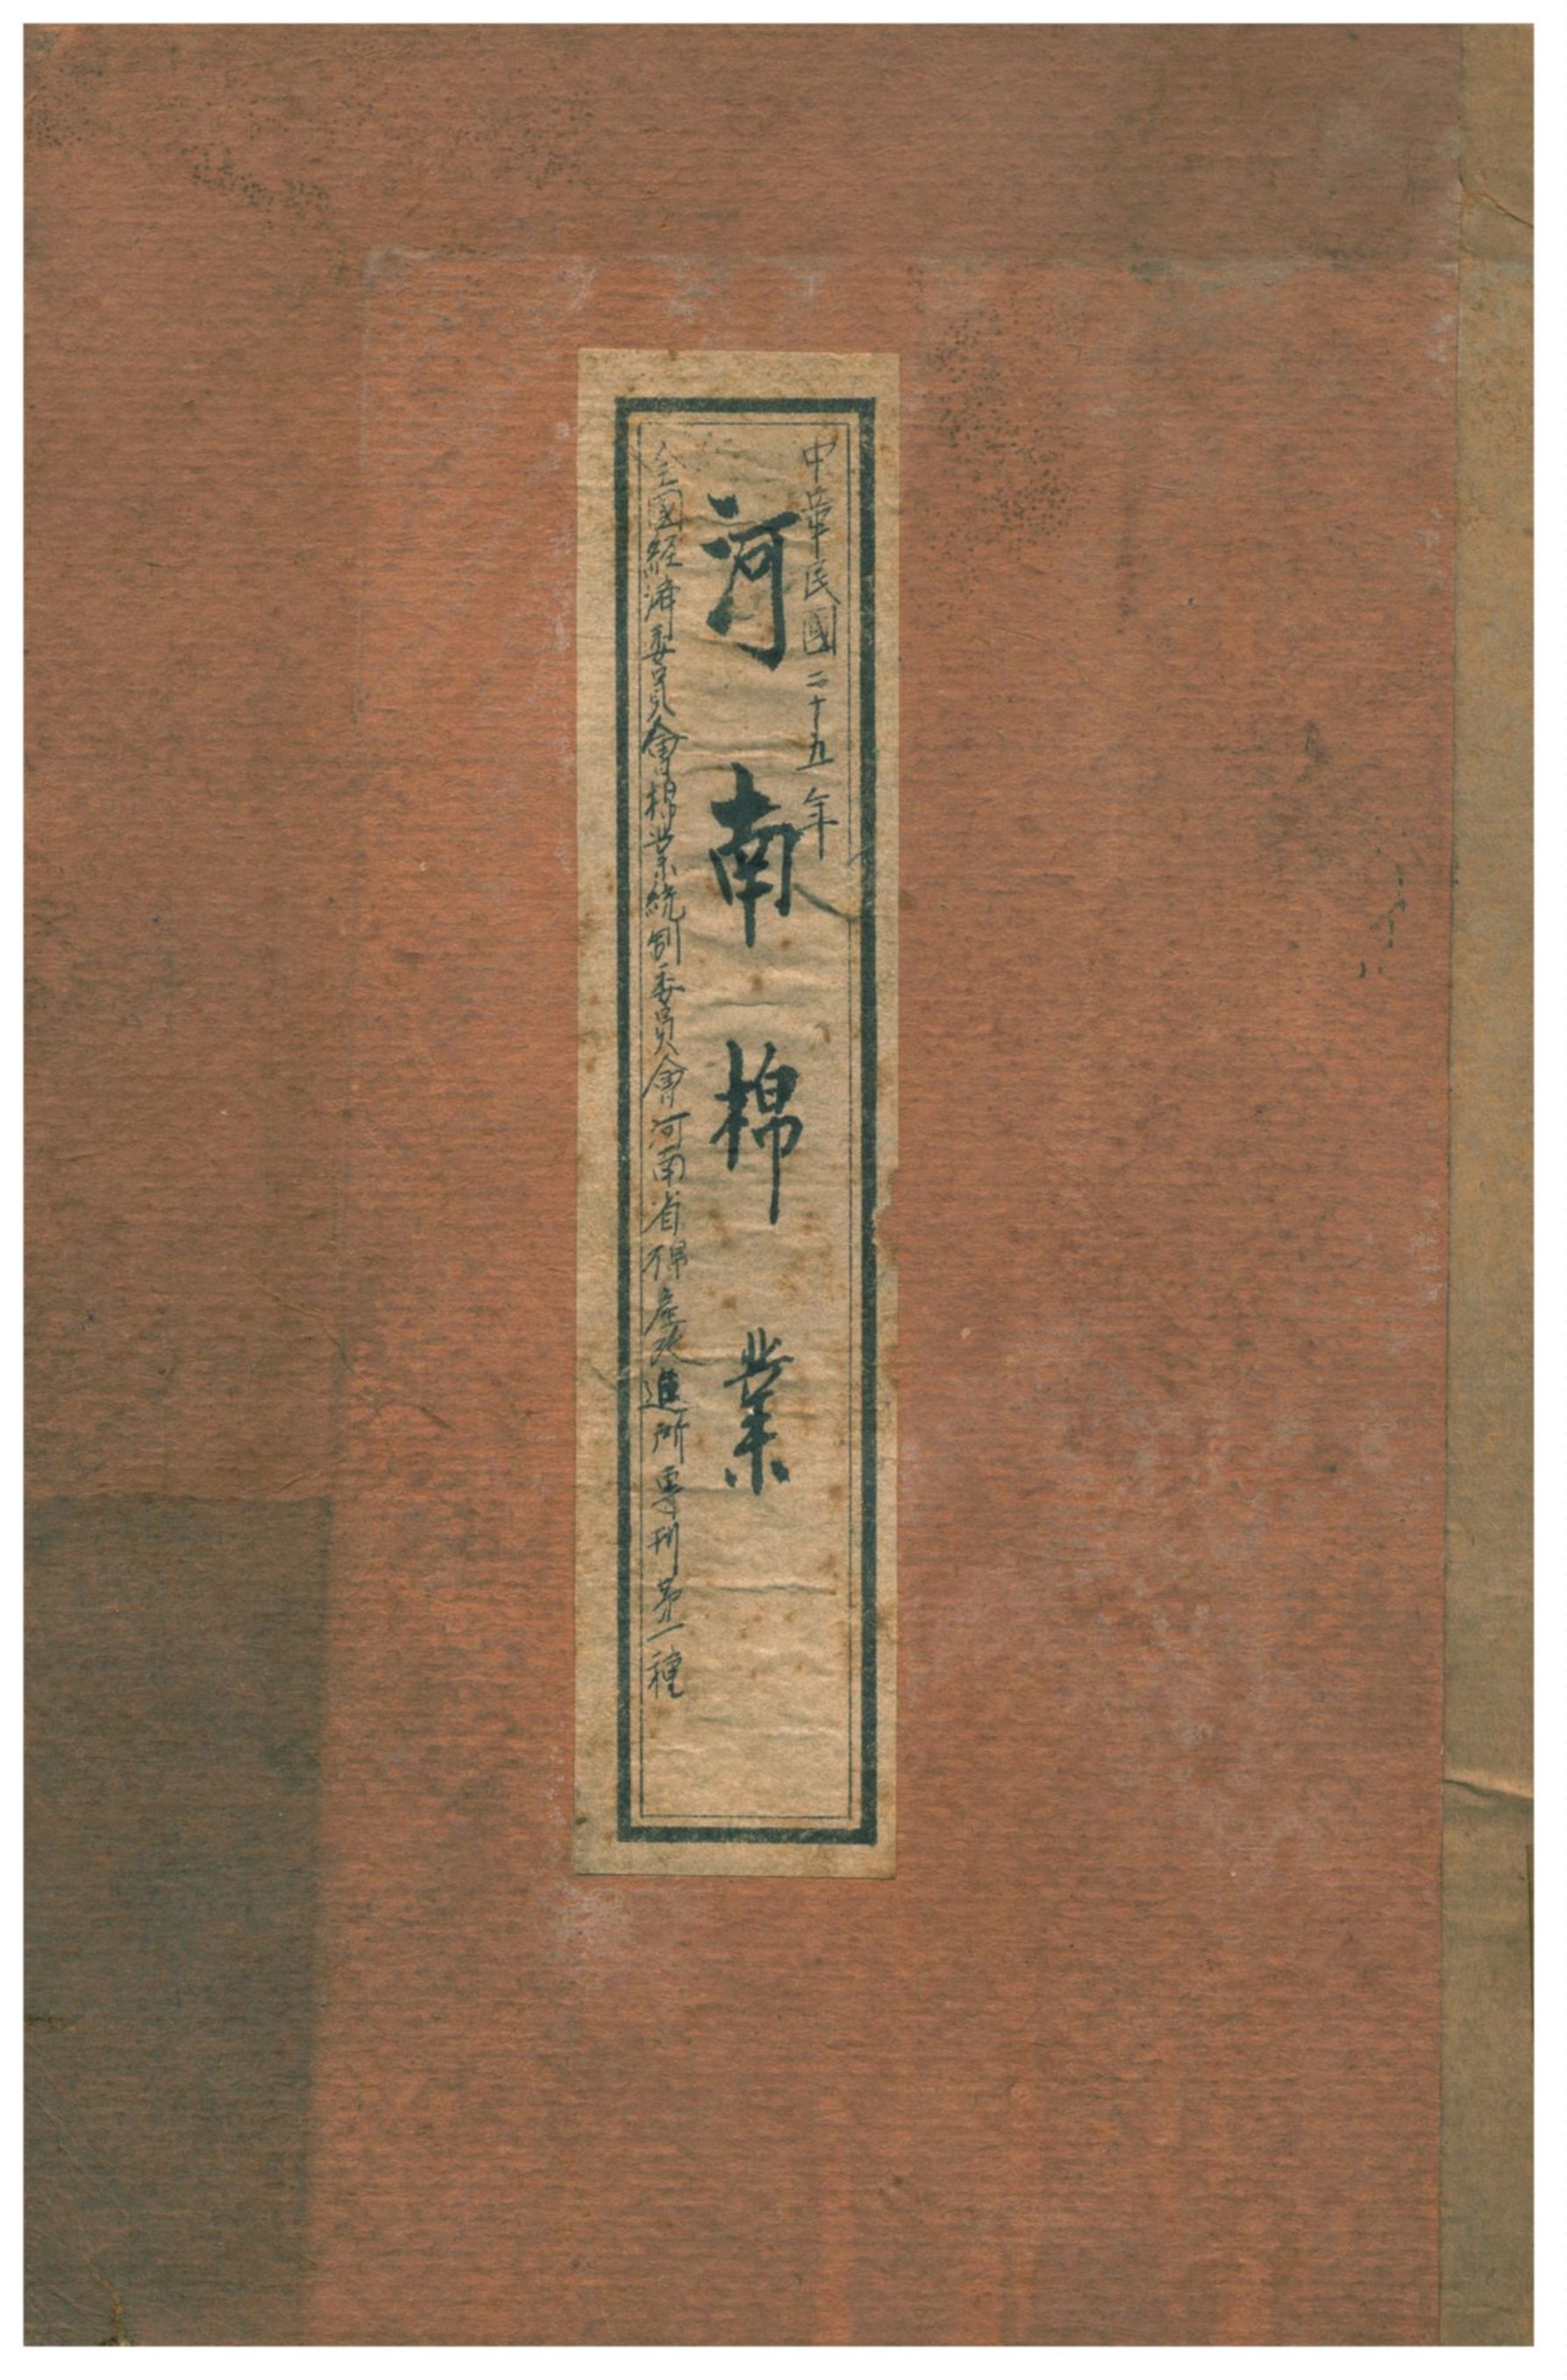 中華民國二十五年
河南棉業
全國経濟委員會棉業統制委員會河南省棉產改進所專刊第一種